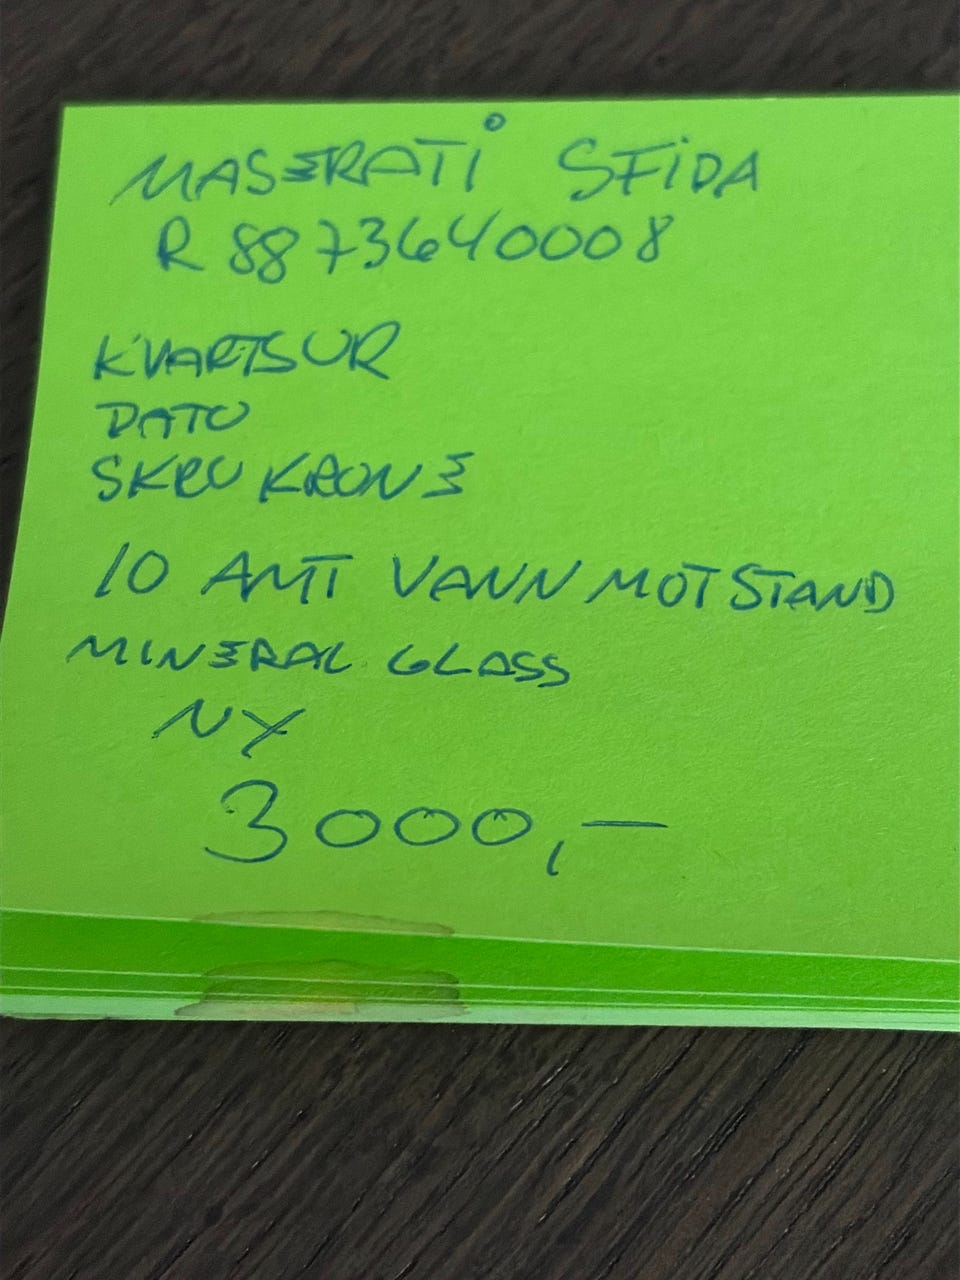 MASERATI SFIDA
R 8873640008
KVARTSUR
DATO
SKRU KRONE
10 AMT VANN MOTSTAND
MINERAL GLASS
NY
3000,-